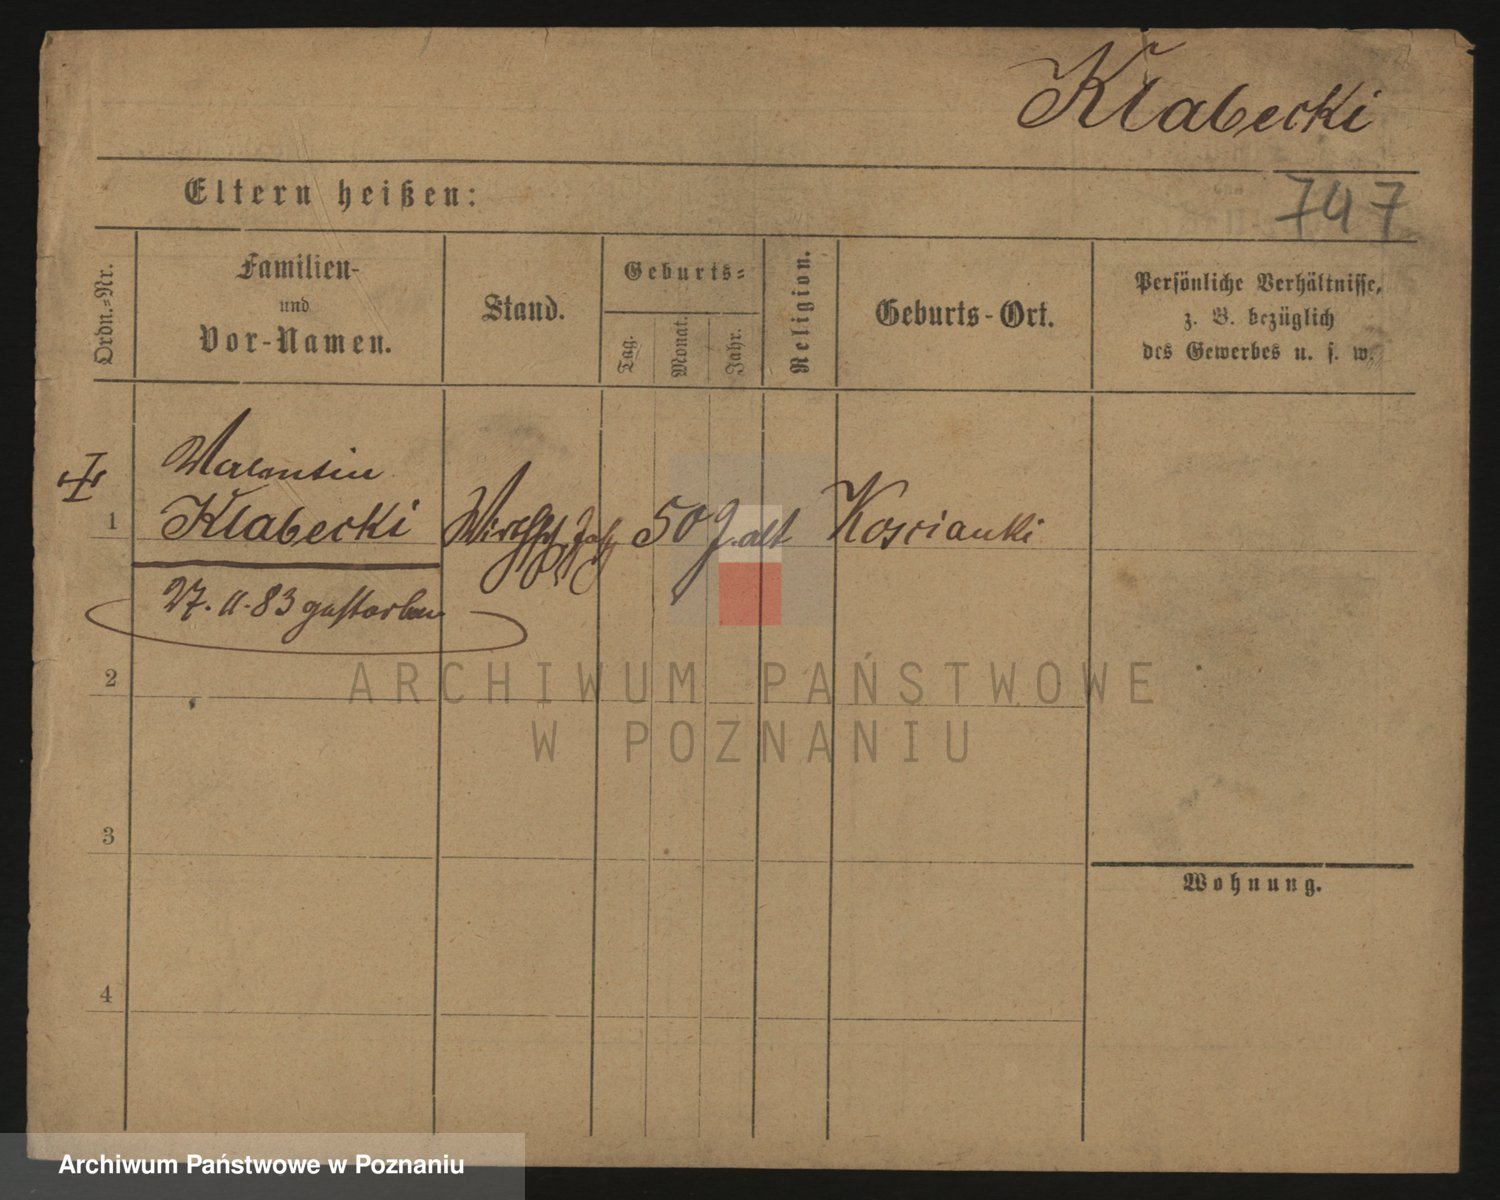 Kłabecki
Eltern heißen:
747
Ordn.-Nr.
Familien-
und
Vor-Namen.
Stand.
Geburts-
Tag.
Monat.
Jahr.
Religion.
Geburts-Ort.
Persönliche Verhältnisse,
z. B. bezüglich
des Gewerbes u. s. w.
Valentin
1
Klabecki
50 J. alt
Koscianki
27. 11. 83 gestorben
2
3
4
Wohnung.
ARCHIWUM PAŃSTWOWE
W POZNANIU
Archiwum Państwowe w Poznaniu